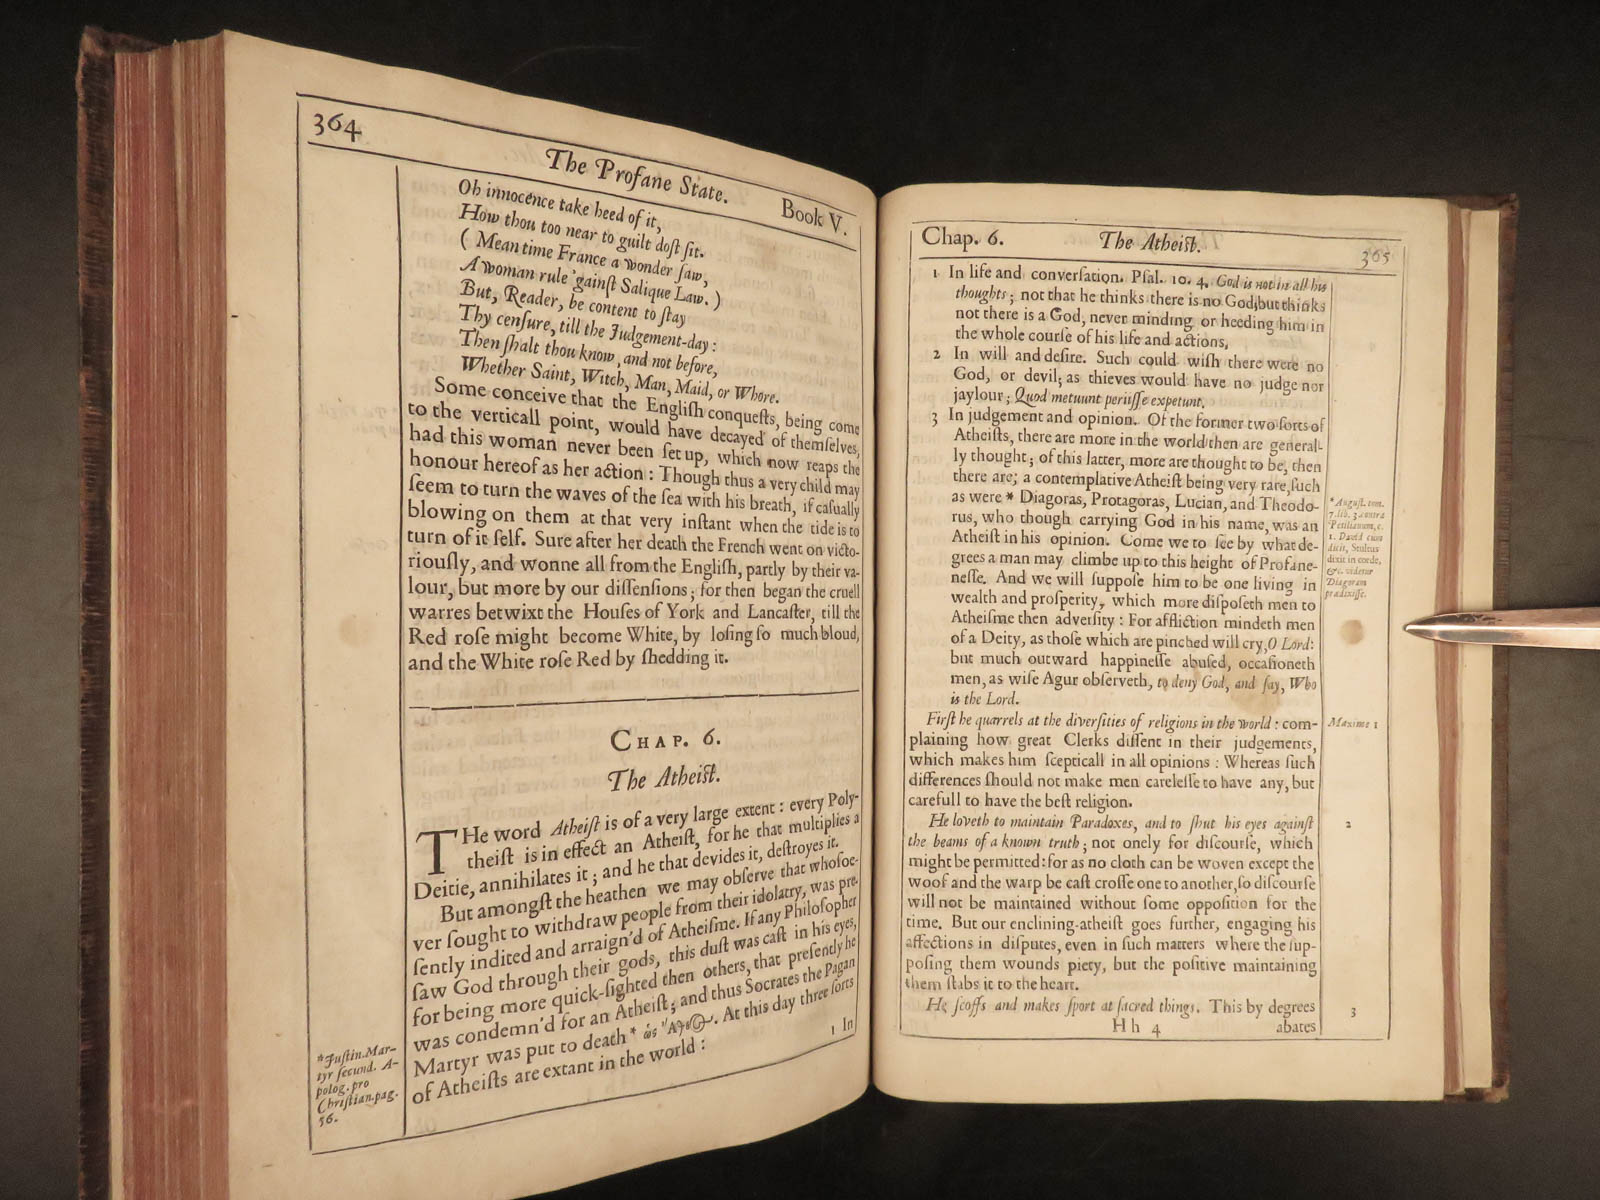 364
The Profane State.
Book V.
Oh innocence take heed of it,
How thou too near to guilt doſt ſit.
( Mean time France a wonder ſaw,
A woman rule 'gainſt Salique Law. )
But, Reader, be content to ſtay
Thy cenſure, till the Judgement-day :
Then ſhalt thou know, and not before,
Whether Saint, Witch, Man, Maid, or Whore.
Some conceive that the Engliſh conqueſts, being come
to the verticall point, would have decayed of themſelves,
had this woman never been ſet up, which now reaps the
honour hereof as her action : Though thus a very child may
ſeem to turn the waves of the ſea with his breath, if caſually
blowing on them at that very inſtant when the tide is to
turn of it ſelf. Sure after her death the French went on victo-
riouſly, and wonne all from the Engliſh, partly by their va-
lour, but more by our diſſenſions; for then began the cruell
warres betwixt the Houſes of York and Lancaſter, till the
Red roſe might become White, by loſing ſo much bloud,
and the White roſe Red by ſhedding it.
CHAP. 6.
The Atheiſt.
THe word Atheiſt is of a very large extent : every Poly-
theiſt is in effect an Atheiſt, for he that multiplies a
Deitie, annihilates it ; and he that devides it, deſtroyes it.
But amongſt the heathen we may obſerve that whoſoe-
ver ſought to withdraw people from their idolatry, was pre-
ſently indited and arraign'd of Atheiſme. If any Philoſopher
ſaw God through their gods, this duſt was caſt in his eyes,
for being more quick-ſighted then others, that preſently he
was condemn'd for an Atheiſt; and thus Socrates the Pagan
Martyr was put to death* ὡς . At this day three ſorts
of Atheiſts are extant in the world :
1 In
*Juſtin.Mar-
tyr ſecund. A-
polog. pro
Chriſtian. pag.
56.
Chap. 6.
The Atheiſt.
365
1 In life and converſation. Pſal. 10. 4. God is not in all his
thoughts ; not that he thinks there is no God, but thinks
not there is a God, never minding or heeding him in
the whole courſe of his life and actions.
2 In will and deſire. Such could wiſh there were no
God, or devil; as thieves would have no judge nor
jaylour ; Quod metuunt periiſſe expetunt.
3 In judgement and opinion. Of the former two ſorts of
Atheiſts, there are more in the world then are general-
ly thought ; of this latter, more are thought to be, then
there are; a contemplative Atheiſt being very rare, ſuch
as were * Diagoras, Protagoras, Lucian, and Theodo-
rus, who though carrying God in his name, was an
Atheiſt in his opinion. Come we to ſee by what de-
grees a man may climbe up to this height of Profane-
neſſe. And we will ſuppoſe him to be one living in
wealth and proſperity, which more diſpoſeth men to
Atheiſme then adverſity : For affliction mindeth men
of a Deity, as thoſe which are pinched will cry, O Lord:
but much outward happineſſe abuſed, occaſioneth
men, as wiſe Agur obſerveth, to deny God, and ſay, Who
is the Lord.
*Auguſt. tom.
7. lib. 3. contra
Petilianum, c.
1. David cum
dicit, Stultus
dixit in corde,
&c. videtur
Diagoram
prædixiſſe.
Firſt he quarrels at the diverſities of religions in the world : com-
Maxime 1
plaining how great Clerks diſſent in their judgements,
which makes him ſcepticall in all opinions : Whereas ſuch
differences ſhould not make men careleſſe to have any, but
carefull to have the beſt religion.
He loveth to maintain Paradoxes, and to ſhut his eyes againſt
2
the beams of a known truth ; not onely for diſcourſe, which
might be permitted: for as no cloth can be woven except the
woof and the warp be caſt croſſe one to another, ſo diſcourſe
will not be maintained without ſome oppoſition for the
time. But our enclining-atheiſt goes further, engaging his
affections in diſputes, even in ſuch matters where the ſup-
poſing them wounds piety, but the poſitive maintaining
them ſtabs it to the heart.
He ſcoffs and makes ſport at ſacred things. This by degrees
3
Hh 4
abates